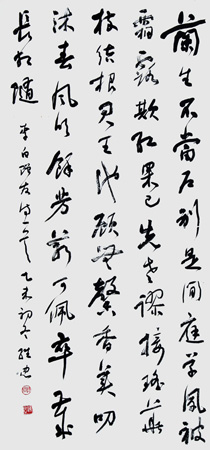 蘭生不當户別是閒庭草夙被
霜露欺紅榮已先老謬接瑤華
枝結根君王池顧無馨香美叨
沐清風吹餘芳若可佩卒歲
長相隨
李白贈友人詩一首 乙未初冬